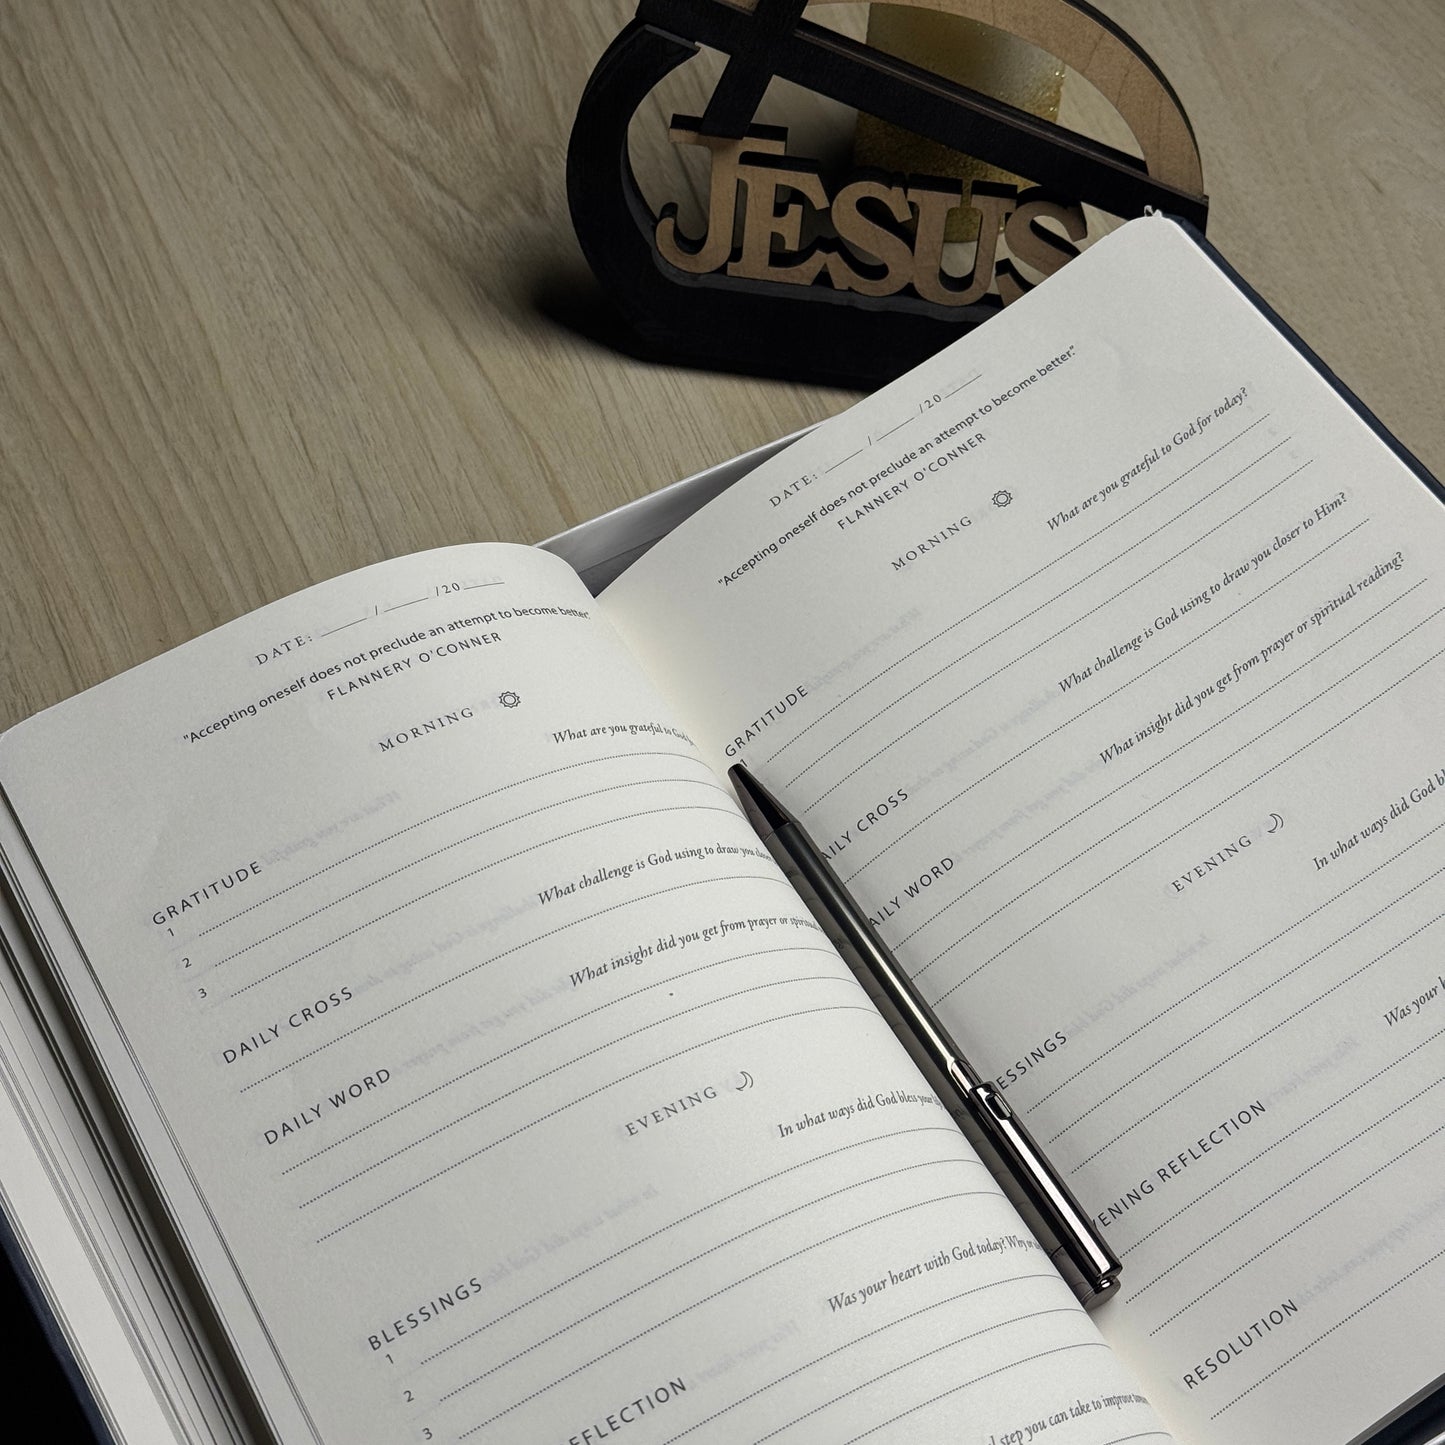 JESUS
DATE: ____ / ____ /20____
"Accepting oneself does not preclude an attempt to become better."
FLANNERY O'CONNER
MORNING
What are you grateful to God
GRATITUDE
1
2
3
What challenge is God using to draw you closer
DAILY CROSS
What insight did you get from prayer or
DAILY WORD
EVENING
In what ways did God bless your
BLESSINGS
1
2
3
Was your heart with God today? Why or
FLECTION
step you can take to improve
DATE: ____ / ____ /20____
"Accepting oneself does not preclude an attempt to become better."
FLANNERY O'CONNER
MORNING
What are you grateful to God for today?
GRATITUDE
1
What challenge is God using to draw you closer to Him?
AILY CROSS
What insight did you get from prayer or spiritual reading?
AILY WORD
EVENING
In what ways did God bl
ESSINGS
Was your h
VENING REFLECTION
RESOLUTION